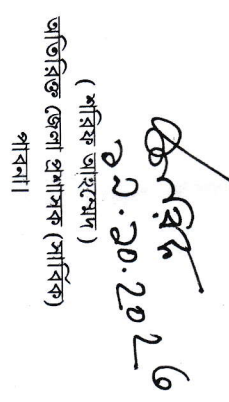 ২২.১০.২০২৬
(শরিফ আহম্মেদ)
অতিরিক্ত জেলা প্রশাসক (সার্বিক)
পাবনা।